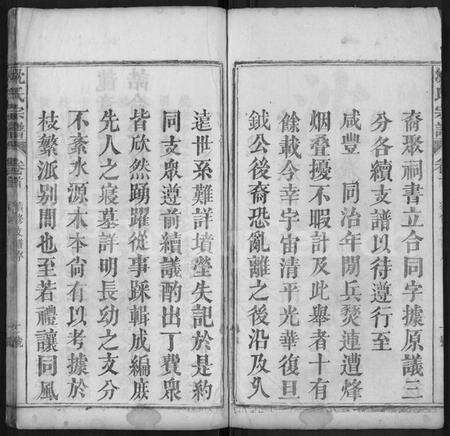 裔聚祠書立合同字據原議三
分各續支譜以待遵行至
咸豐 同治年間兵燹連遭烽
烟叠擾不暇計及此舉者十有
餘載今幸宇宙清平光華復旦
鉞公後裔恐亂離之後沿及久
遠世系難詳墳塋失記於是約
同支眾遵前續議酌出丁費眾
皆欣然踴躍從事踩輯成編庶
先人之寢墓詳明長幼之支分
不紊水源木本尙有以考據於
枝繁派别間也至若禮讓同風
沈氏宗譜
卷首